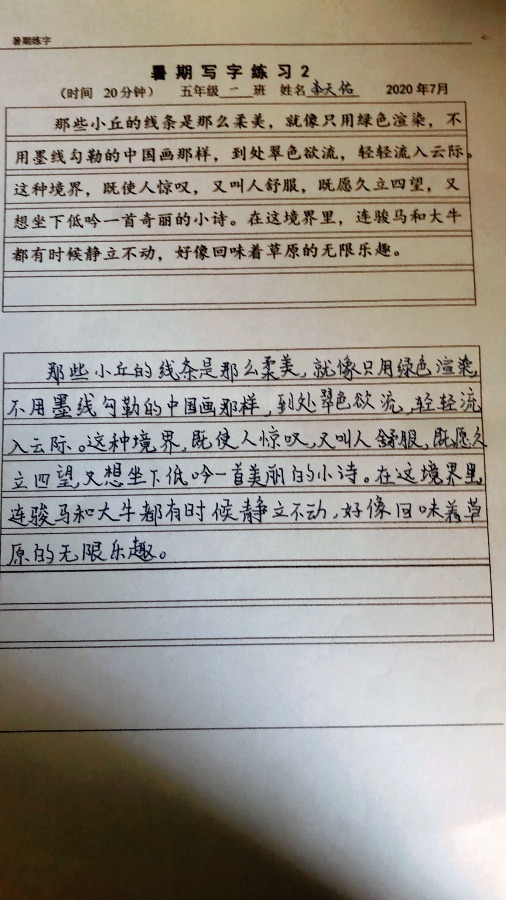 暑期练字
暑期写字练习2
（时间 20分钟） 五年级 一 班 姓名 李天佑 2020年7月
那些小丘的线条是那么柔美，就像只用绿色渲染，不
用墨线勾勒的中国画那样，到处翠色欲流，轻轻流入云际。
这种境界，既使人惊叹，又叫人舒服，既愿久立四望，又
想坐下低吟一首奇丽的小诗。在这境界里，连骏马和大牛
都有时候静立不动，好像回味着草原的无限乐趣。
那些小丘的线条是那么柔美，就像只用绿色渲染，
不用墨线勾勒的中国画那样，到处翠色欲流，轻轻流
入云际。这种境界，既使人惊叹，又叫人舒服，既愿久
立四望，又想坐下低吟一首美丽的小诗。在这境界里，
连骏马和大牛都有时候静立不动，好像回味着草
原的无限乐趣。